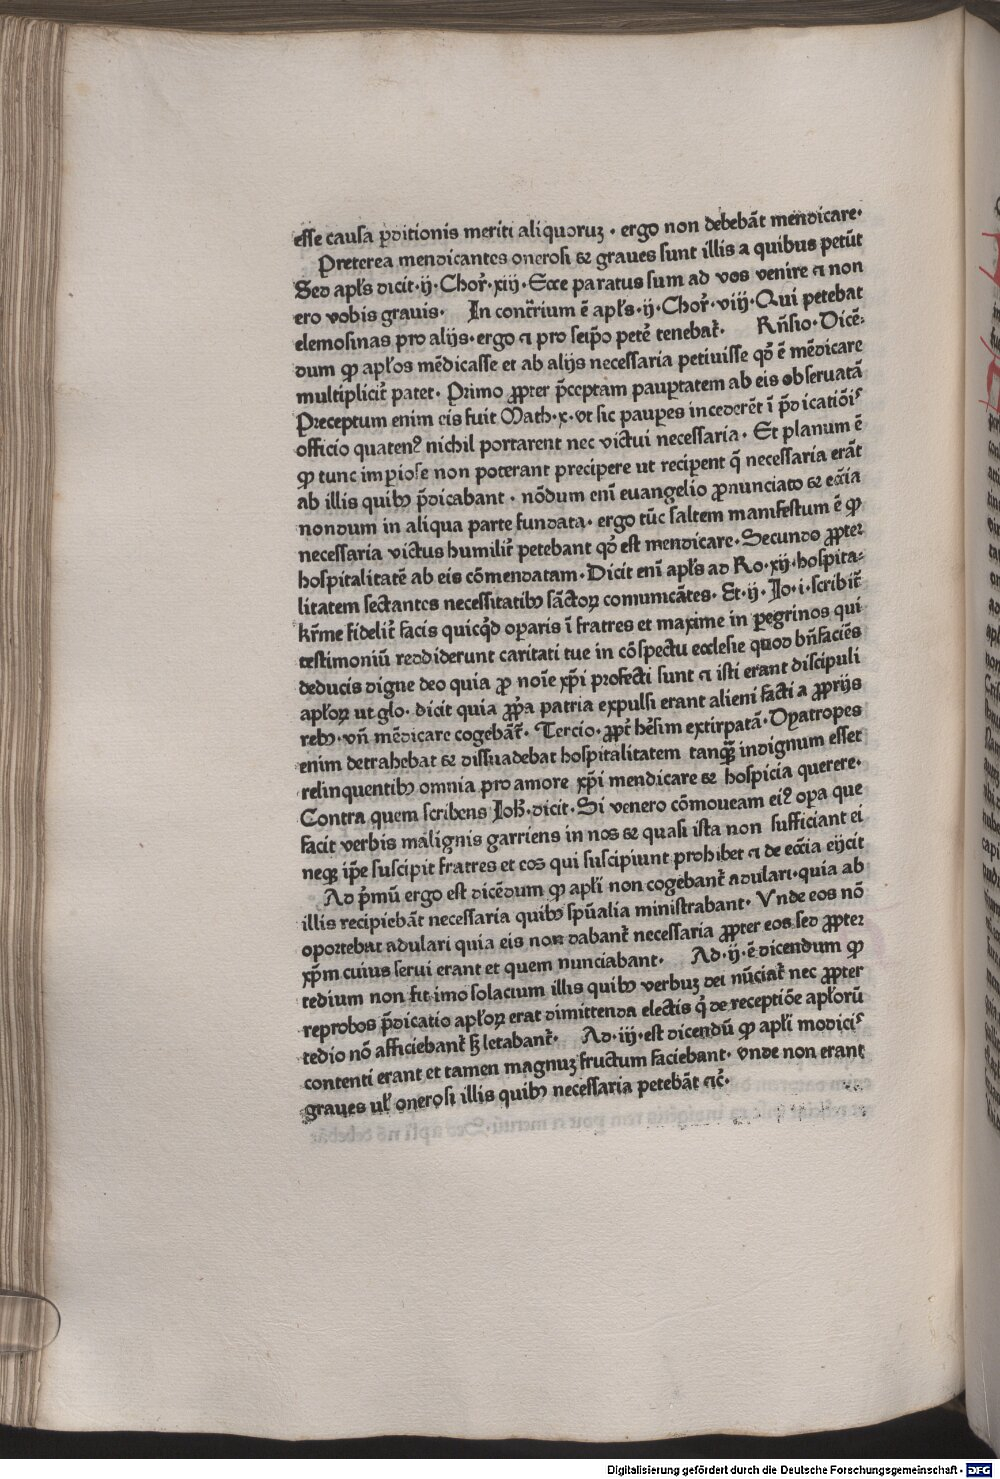 esse causa ꝑditionis meriti aliquoruꝫ · ergo non debebāt mendicare·
Preterea mendicantes onerosi ⁊ graues sunt illis a quibus petūt
Sed apl̓s dicit·ij·Chor̃·xiij·Ecce paratus sum ad vos venire ⁊ non
ero vobis grauis· In contr̃rium ē apl̓s·ij·Chor̃·viij·Qui petebat
elemosinas pro alijs·ergo ⁊ pro seip̄o petē tenebat̃· Rñsio·Dicē⸗
dum ꝙ apl̓os mēdicasse et ab alijs necessaria petiuisse qd̓ ē mēdicare
multiplicit̃ patet· Primo ꝓpter p̄ceptam pauꝑtatem ab eis obseruatā
Preceptum enim eis fuit Math·x·vt sic pauꝑes incederēt ī p̄dicatiōiꝰ
officio quatenꝰ nichil portarent nec victui necessaria· Et planum ē
ꝙ tunc imꝑiose non poterant precipere ut reciꝑent q̄ necessaria erāt
ab illis quibꝫ p̄dicabant · nōdum enī euangelio ꝓnunciato ⁊ ecc̄ia
nondum in aliqua parte fundata· ergo tūc saltem manifestum ē ꝙ
necessaria victus humilit̃ petebant qd̓ est mendicare·Secundo ꝓpter
hospitalitatē ab eis cōmendatam·Dicit enī apl̓s ad Ro·xij·hospita⸗
litatem sectantes necessitatibꝫ sāctoꝝ comunicātes· Et·ij·Jo·i·scribit̃
kr̄me fidelit̃ facis quicqd̓ oꝑaris ī fratres et maxime in ꝑegrinos qui
testimoniū reddiderunt caritati tue in cōspectu ecclesie quod bn̄faciēs
deducis digne deo quia ꝓ noīe xp̄i profecti sunt ⁊ isti erant discipuli
apl̓oꝝ ut glo· dicit quia ꝓp̄a patria expulsi erant alieni facti a ꝓprijs
rebꝫ·vñ mēdicare cogebāt̃· Tercio·ꝓpt̃ hēsim extirpatā·Dyatropes
enim detrahebat ⁊ dissuadebat hospitalitatem tanqꝫ̄ indignum esset
relinquentibꝫ omnia pro amore xp̄i mendicare ⁊ hospicia querere·
Contra quem scribens Joh̄·dicit·Si venero cōmoueam eiꝰ oꝑa que
facit verbis malignis garriens in nos ⁊ quasi ista non sufficiant ei
neqꝫ ip̄e suscipit fratres et eos qui suscipiunt prohibet ⁊ de ecc̄ia eijcit
Ad p̄mū ergo est dicēdum ꝙ apl̓i non cogebant̃ adulari·quia ab
illis recipiebāt necessaria quibꝫ sp̄ualia ministrabant· Vnde eos nō
oportebat adulari quia eis non dabant̃ necessaria ꝓpter eos sed ꝓpter
xp̄m cuius serui erant et quem nunciabant· Ad·ij·ē dicendum ꝙ
tedium non fit imo solacium illis quibꝫ verbuꝫ dei nūciat̃ nec ꝓpter
reprobos p̄dicatio apl̓oꝝ erat dimittenda electis q̓ de receptiōe apl̓orū
tedio nō afficiebant̃ sꝫ letabant̃· Ad·iij·est dicendū ꝙ apl̓i modiciꝰ
contenti erant et tamen magnuꝫ fructum faciebant· vnde non erant
graues ul̓ onerosi illis quibꝫ necessaria petebāt ⁊c̃·
Digitalisierung gefördert durch die Deutsche Forschungsgemeinschaft · DFG